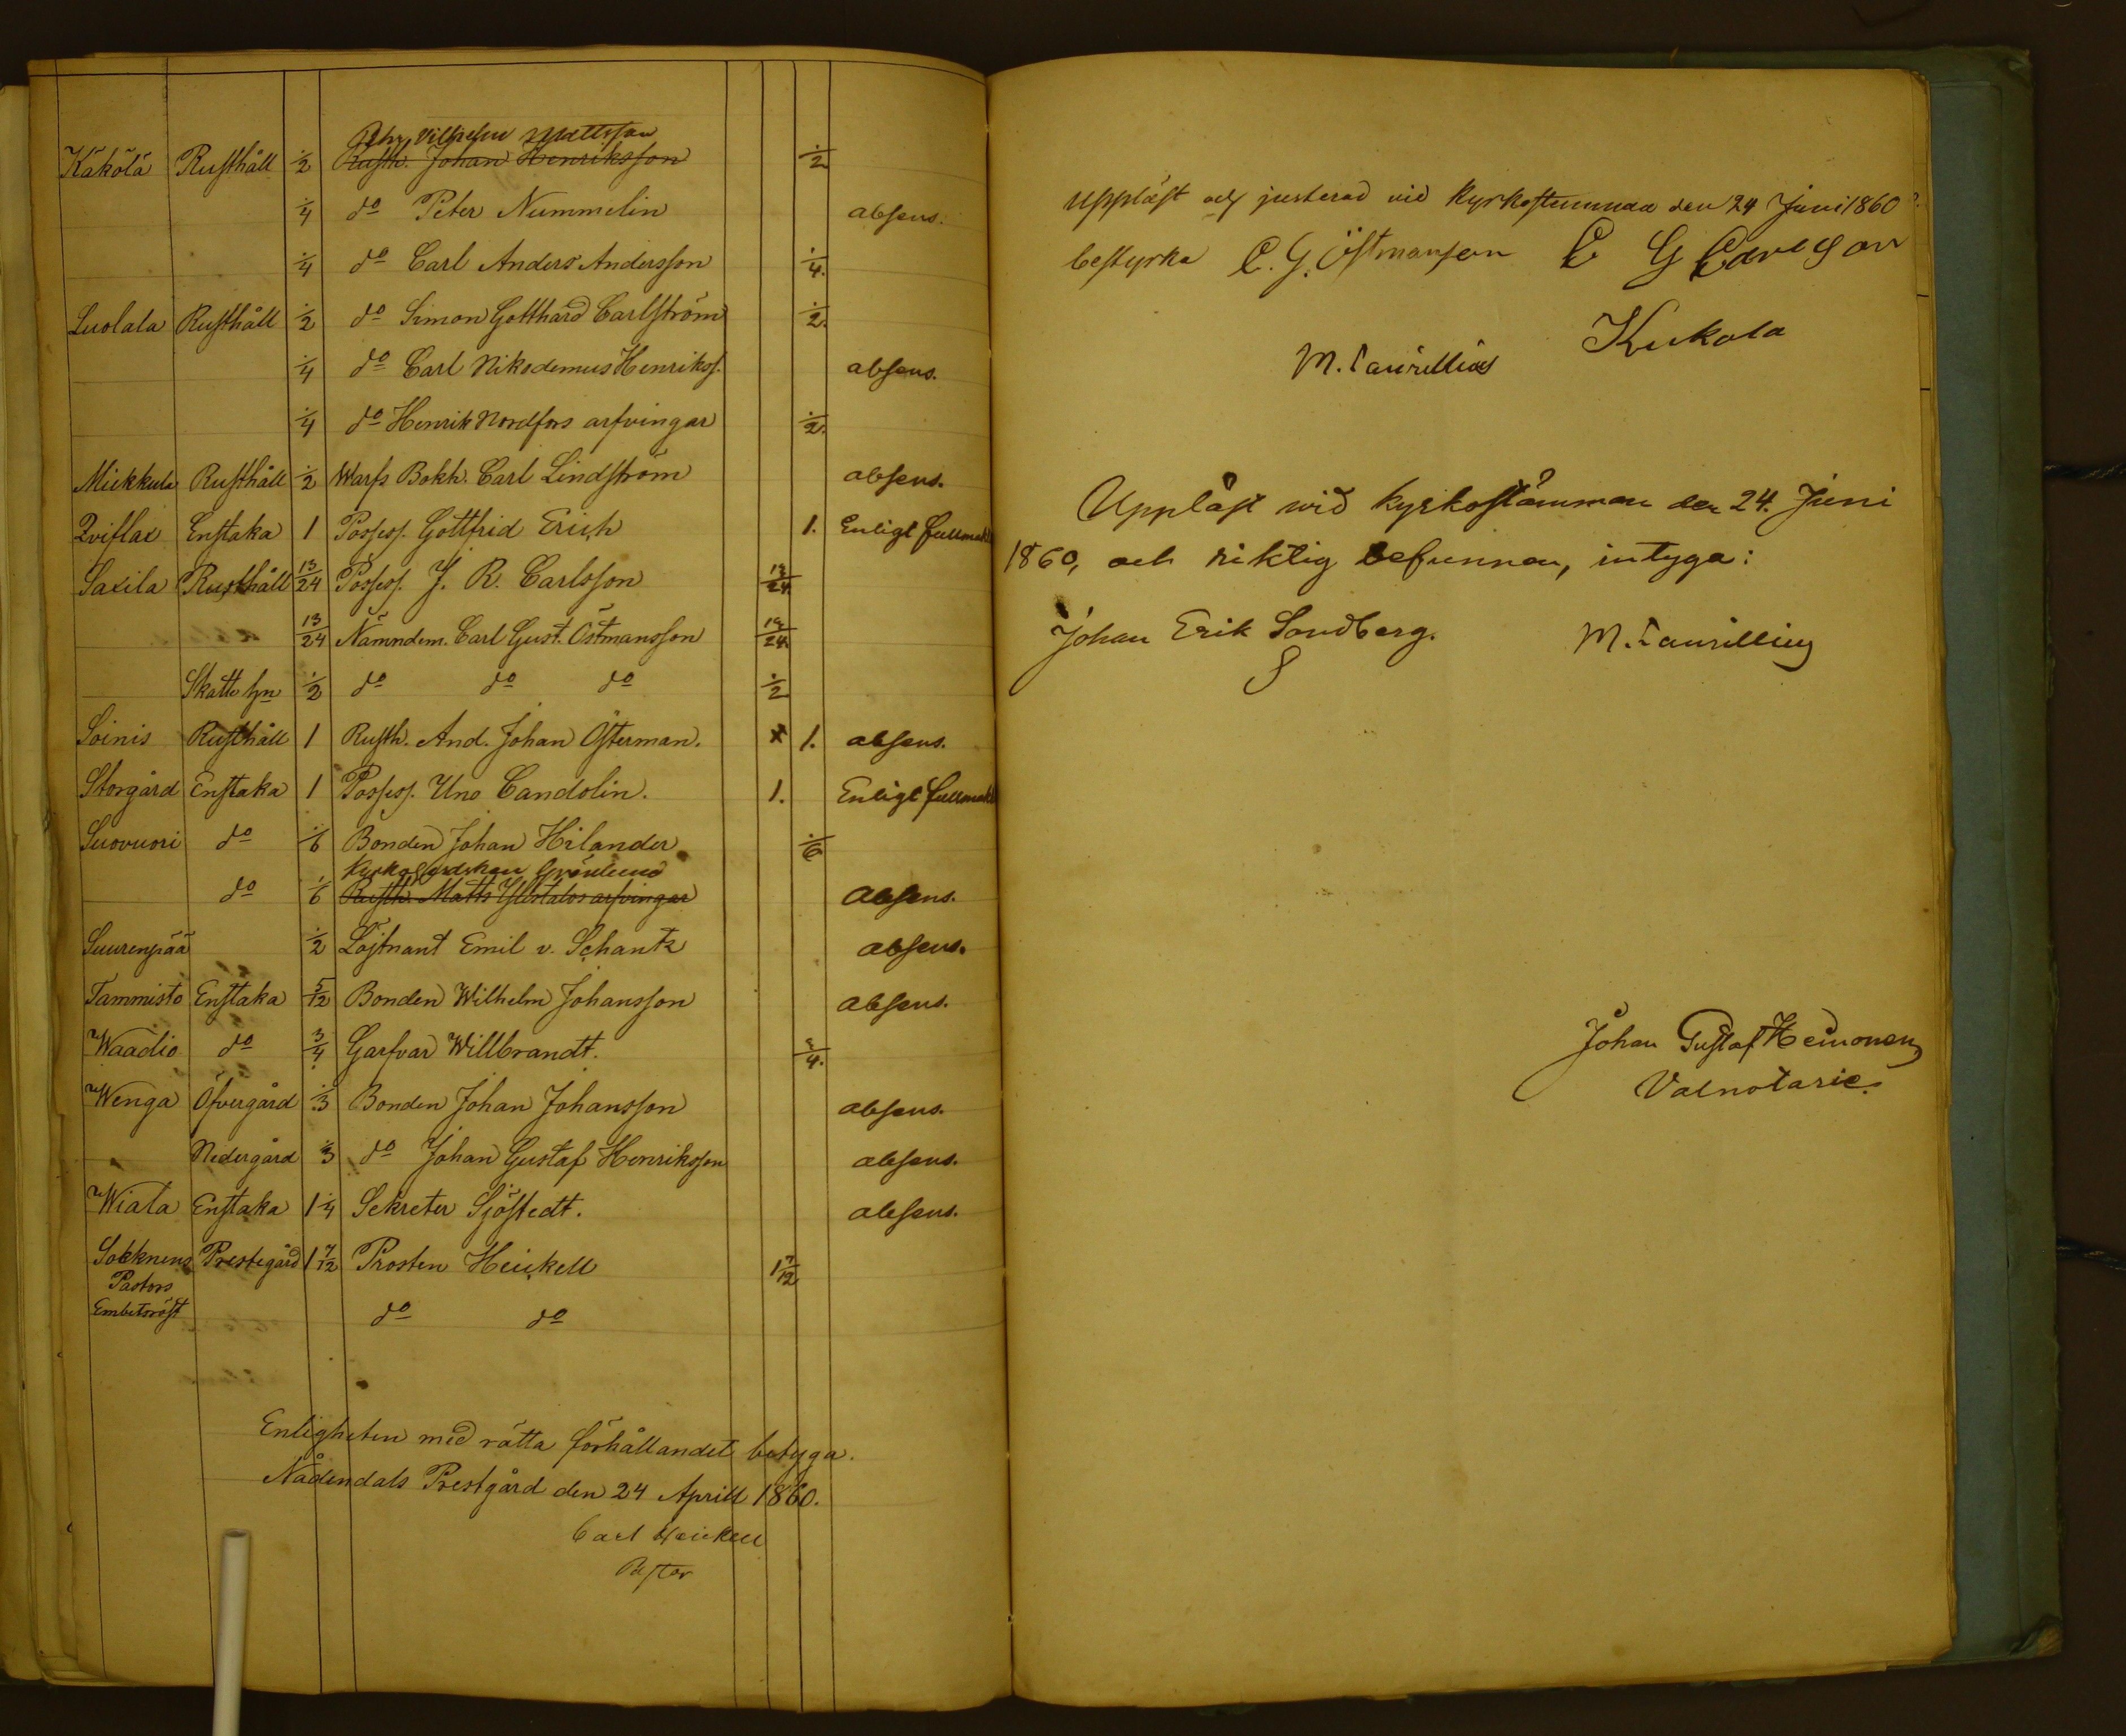 Pehr Vilhelm Mattsson
Käkölä Rusthåll 1/2 Rusth. Johan Henriksson 1/2
1/4 do Peter Nummelin absens.
1/4 do Carl Anders Andersson 1/4.
Luolala Rusthåll 1/2 do Simon Gotthard Carlström 1/2.
1/4 do Carl Nikodemus Henrikss. absens.
1/4 do Henrik Nordfors arfvingar 1/2.
Miekkula Rusthåll 1/2 Warfs Bokh. Carl Lindström absens.
Qviflax Enstaka 1 Possess. Gottfrid Erich 1. Enligt fullmakt
Saxila Rusthåll 13/24 Possess. J. R. Carlsson 13/24.
13/24 Nämndem. Carl Gust. Östmansson 13/24.
Skatte hn 1/2 do do do 1/2
Soinis Rusthåll 1 Rusth. And. Johan Österman. 1. absens.
Storgård Enstaka 1 Possess. Uno Candolin. 1. Enligt fullmakt
Suovuori do 1/6 Bonden Johan Hilander 1/6
Grönlund
do 1/6 Rusth. Matts arfvingar absens.
Suurenpää 1/2 Löjtnant Emil v. Schantz absens.
Tammisto Enstaka 5/12 Bonden Wilhelm Johansson absens.
Waadio do 3/4 Garfvar Willbrandt. 3/4.
Wenga Öfvergård 1/3 Bonden Johan Johansson absens.
Nedergård 1/3 do Johan Gustaf Henriksson absens.
Wiala Enstaka 1 1/4 Sekreter Sjöstedt. absens.
Sokknens Prestegård 1 7/12 Prosten Heickell 1 7/12
Pastors
Embetsröst do do
Enligheten med rätta förhållandet betyga.
Nådendals Prestgård den 24 Aprill 1860.
Carl Heickell
Pastor
Uppläst och justerad vid kyrkostemman den 24 Juni 1860
bestyrka C. G. Östmanson C G Carlson
Kukola
M. Laurellius
Uppläst wid kyrkostämman den 24. Juni
1860, och riktig befunnen, intyga:
Johan Erik Sandberg. M. Laurellius
Johan Gustaf Heinonen
Valnotarie.